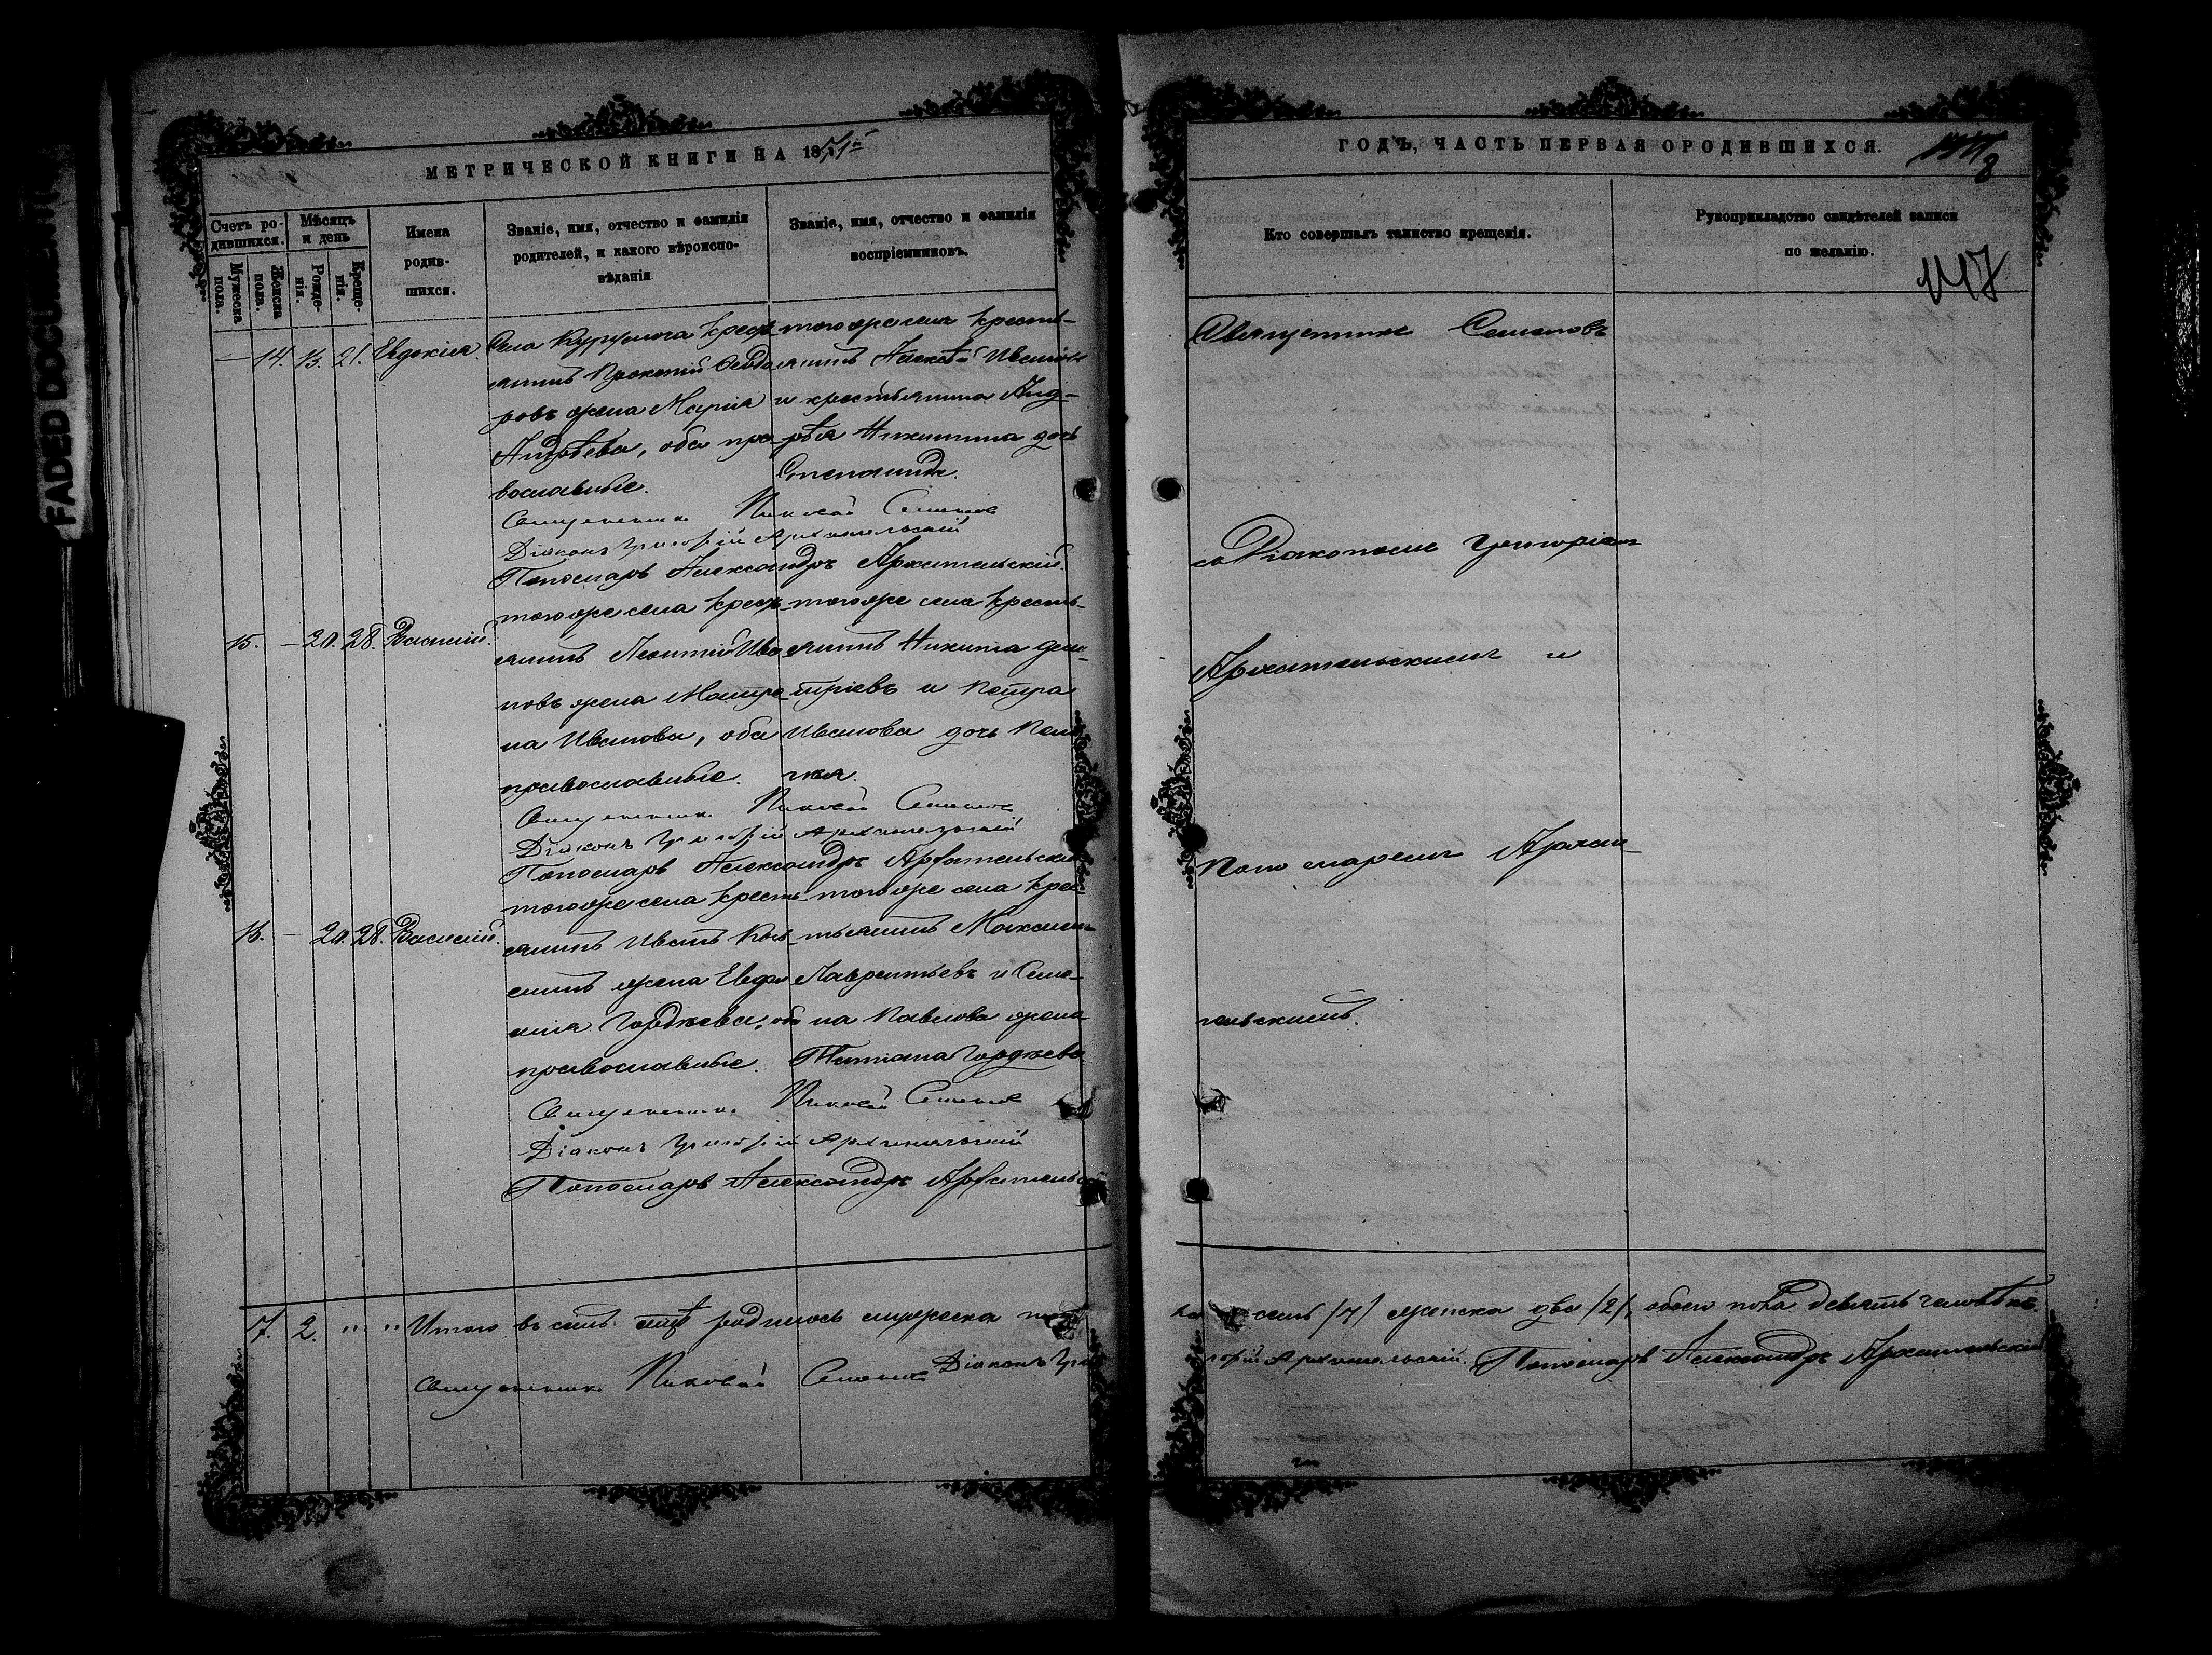 FADED DOCUMENT
МЕТРИЧЕСКОЙ КНИГИ НА 1871й
Счетъ ро-
дившихся.
Мужеска
пола.
Женска
пола.
Мѣсяцъ
и день
Рожде-
нія.
Креще-
нія.
Имена
родив-
шихся.
Званіе, имя, отчество и фамилія
родителей, и какого вѣроиспо-
вѣданія
Званіе, имя, отчество и фамилія
воспріемниковъ.
— 14. 13. 21. Евдокія
Села Курумоча крест-
янинъ Прокопій Ѳедо
ровъ жена Марія
Андрѣева, оба пра-
вославные.
тогоже села кресть-
янинъ Алексѣй Ивановъ
и крестьянина Анд-
рѣя Никитина дочь
Степанида.
Священникъ Николай Семеновъ
Діаконъ Григорій Архангельскій
Пономарь Александръ Архангельскій.
15. — 20. 28. Василій.
тогоже села крест-
янинъ Леонтій Ива
новъ жена Матре
на Иванова, оба
православные.
тогоже села кресть-
янинъ Никита Дми-
тріевъ и Петра
Иванова дочь Пела
гея.
Священникъ Николай Семеновъ
Діаконъ Григорій Архангельскій
Пономарь Александръ Архангельскій
16. — 20. 28. Василій.
тогоже села кресть
янинъ Иванъ
жена Евфи
мія Гордѣева, оба
православные.
тогоже села крес
тьянинъ Максимъ
Лаврентьевъ и Семе-
на Павлова жена
Татіана Гордѣева
Священникъ Николай Семеновъ
Діаконъ Григорій Архангельскій
Пономарь Александръ Архангельскій
7. 2. " " Итого въ семъ м҃цѣ родилось мужеска
Священникъ Николай Семеновъ Діаконъ Гри
ГОДЪ, ЧАСТЬ ПЕРВАЯ О РОДИВШИХСЯ.
8
Кто совершалъ таинство крещенія.
Рукоприкладство свидѣтелей записи
по желанію.
147
Священникъ Семеновъ
со Діакономъ Григоріемъ
Архангельскимъ и
Пономаремъ Архан-
гельскимъ.
семь /7/ женска два /2/, обоего пола девять человѣкъ.
горій Архангельскій. Пономарь Александръ Архангельскій